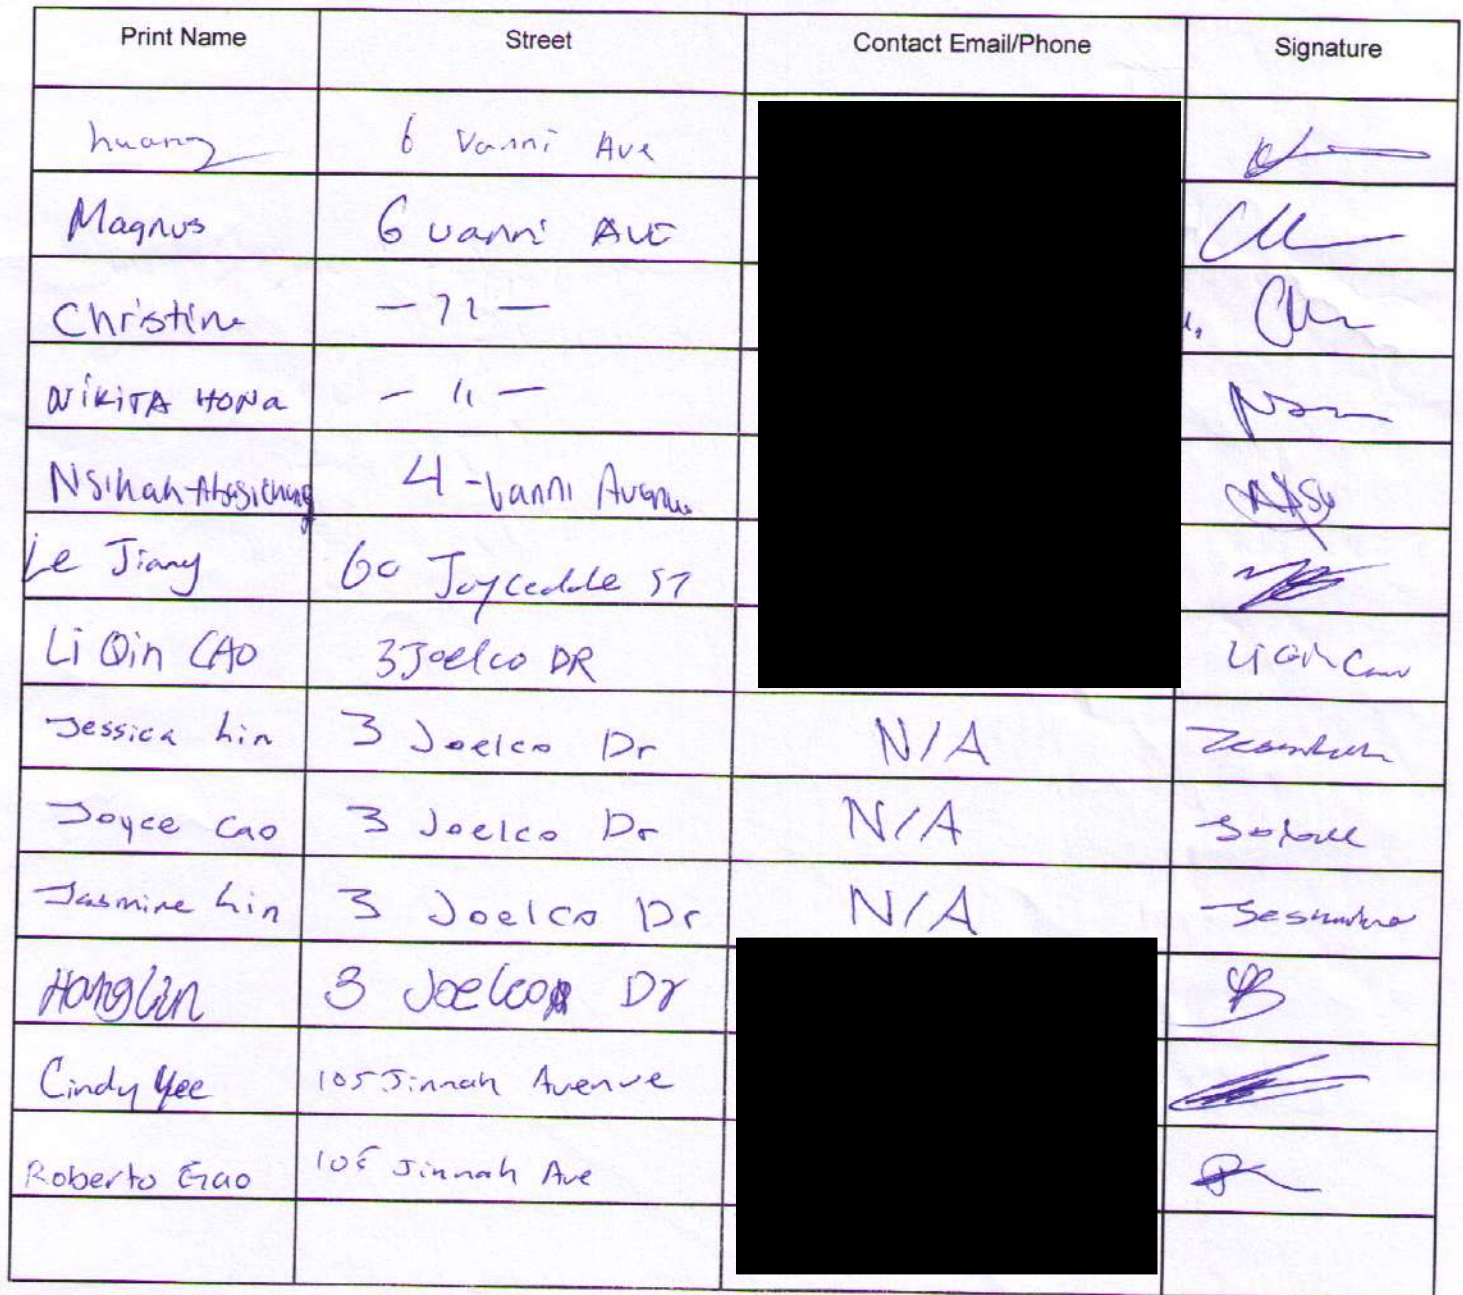 Print Name Street Contact Email/Phone Signature
huang 6 Vanni Ave
Magnus 6 vanni AVE
Christine — 11 —
NiKiTA HONa — 11 —
4 - Vanni Avenue
Le Jiang 60 ST
Li Qin CAO 3 Joelco DR Li Qin Cao
Jessica Lin 3 Joelco Dr N/A
Joyce Cao 3 Joelco Dr N/A
Jasmine Lin 3 Joelco Dr N/A
Hong Lin 3 Joelco Dr
Cindy Yee 105 Jinnah Avenue
Roberto Gao 105 Jinnah Ave